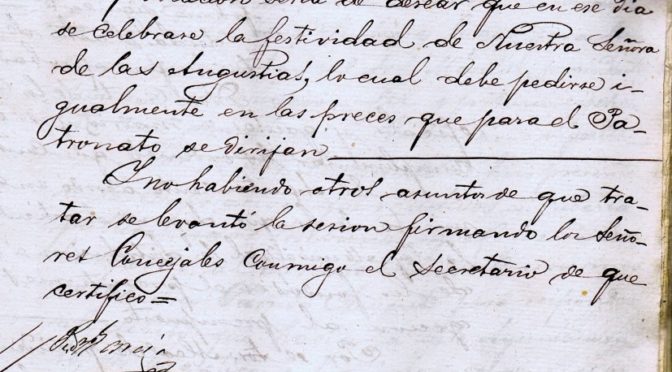 sería de desear que en ese día
se celebrase la festividad de Nuestra Señora
de las Angustias, lo cual debe pedirse i-
gualmente en las preces que para el Pa-
tronato se dirijan
Y no habiendo otros asuntos de que tra-
tar se levantó la sesion firmando los Seño-
res Concejales conmigo el Secretario de que
certifico=
García